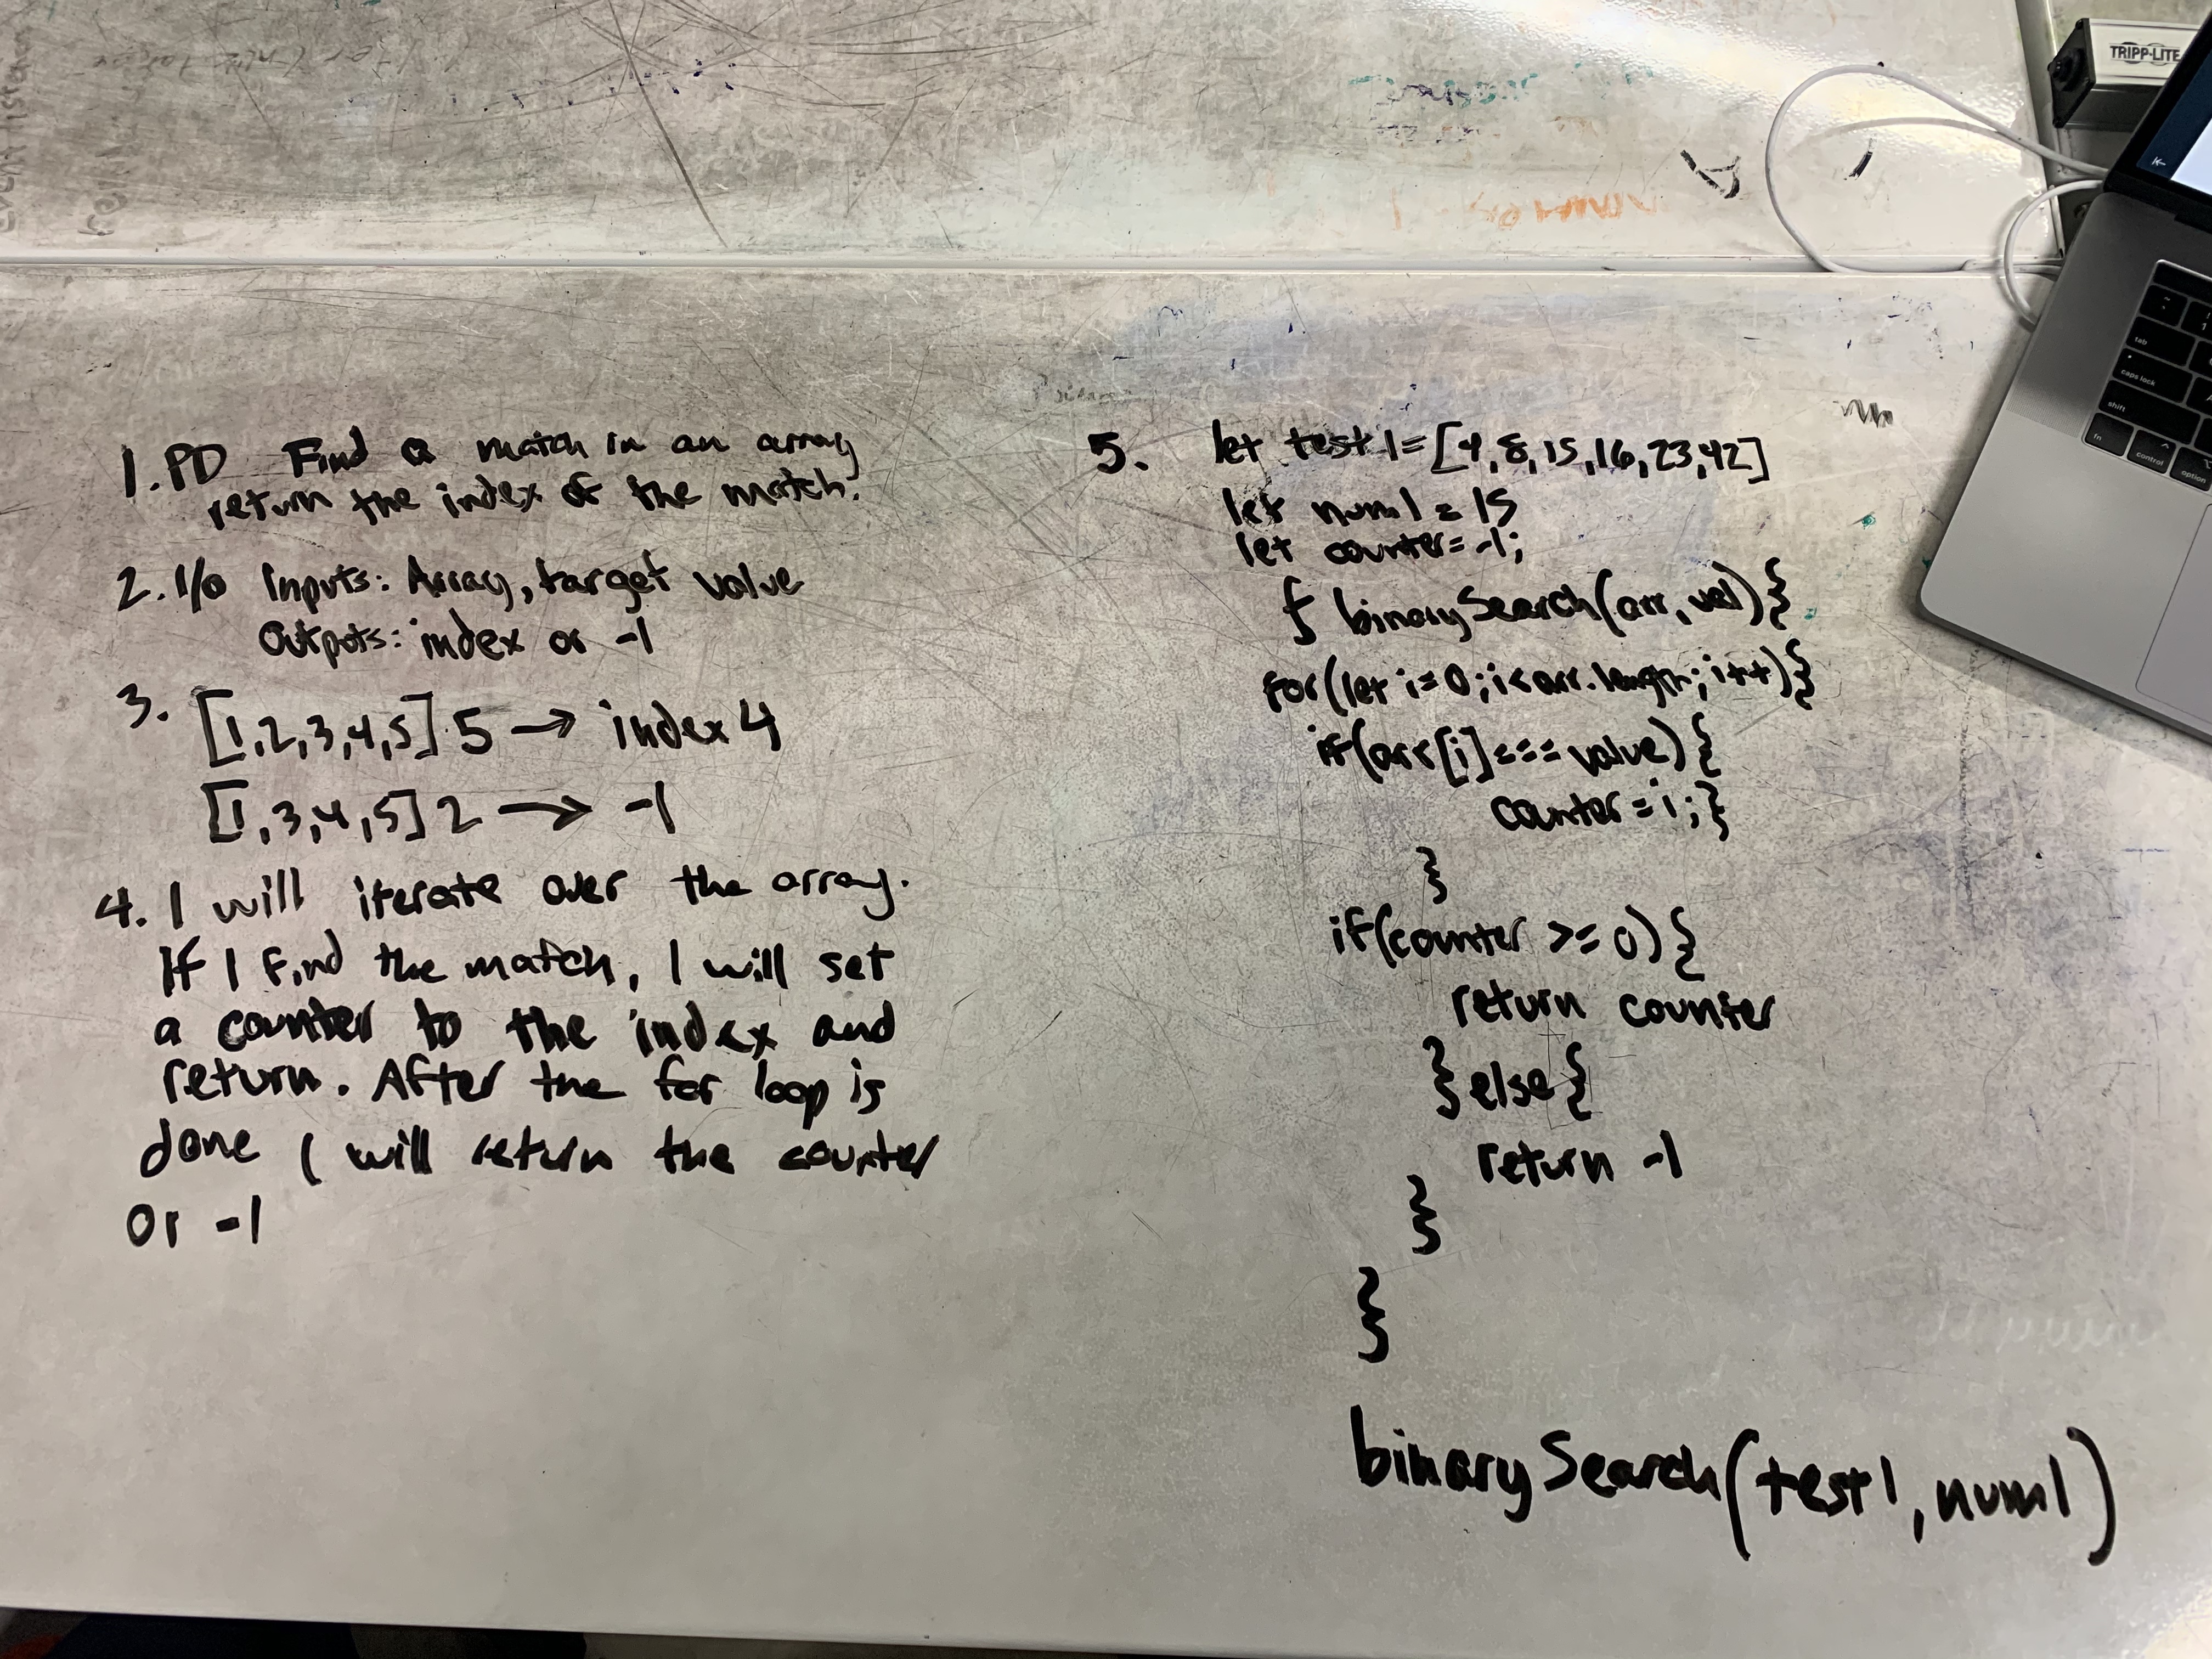 TRIPP·LITE
1. PD Find a match in an array
return the index of the match.
2. I/O Inputs: Array, target value
Outputs: index or -1
3. [1,2,3,4,5] 5 → index 4
[1,3,4,5] 2 → -1
4. I will iterate over the array.
If I find the match, I will set
a counter to the index and
return. After the for loop is
done I will return the counter
or -1
5. let test1=[4,8,15,16,23,42]
let num1 = 15
let counter=-1;
f binarySearch(arr, val){
for(let i=0;i<arr.length;i++){
if(arr[i]===value){
counter=i;}
}
if(counter >= 0){
return counter
}else{
return -1
}
}
binarySearch(test1,num1)
tab
caps lock
shift
fn
control
option